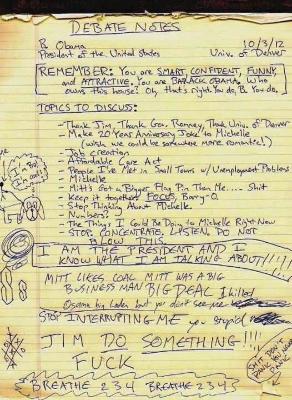 DEBATE NOTES
B. Obama 10/3/12
President of the United States Univ. of Denver
REMEMBER: You are SMART, CONFIDENT, FUNNY,
and ATTRACTIVE. You are BARACK OBAMA. Who
owns this house? Oh, that's right. You do, B. You do.
TOPICS TO DISCUSS:
- Thank Jim, Thank Gov. Romney, Thank Univ. of Denver
- Make 20 Year Anniversary Joke to Michelle
(wish we could be somewhere more romantic!)
- Job creation
- Affordable Care Act
- People I've Met in Small Towns w/ Unemployment Problems
- Michelle
- Mitt's Got a Bigger Flag Pin Than Me.... Shit
- Keep it together, FOCUS, Barry-O
- Stop Thinking About Michelle
- Numbers?
- The Things I Could Be Doing to Michelle Right Now
- STOP. CONCENTRATE. LISTEN. DO NOT
BLOW THIS
I AM THE PRESIDENT AND I
KNOW WHAT I AM TALKING ABOUT!!!!!!
MITT LIKES COAL MITT WAS A BIG
BUSINESS MAN BIG DEAL I killed
Osama bin Laden but you don't see me
STOP INTERRUPTING ME you stupid
JIM DO SOMETHING!!!
FUCK
BREATHE 2 3 4 BREATHE 2 3 4 5
SHIT DON'T PANIC